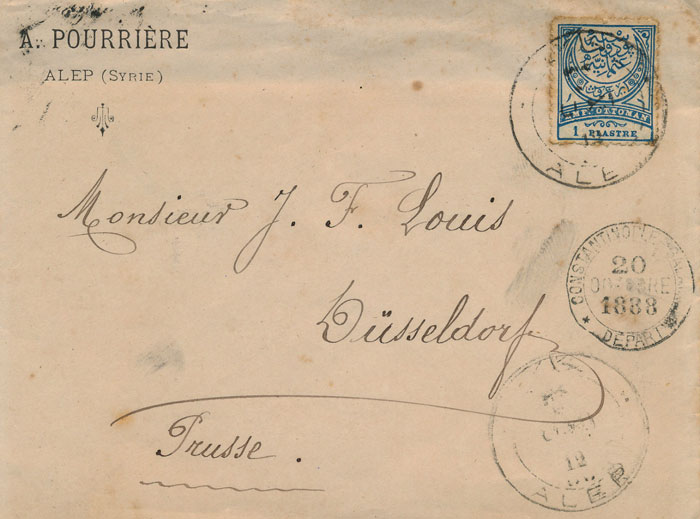 A. POURRIÈRE
ALEP (SYRIE)
EMP. OTTOMAN
1 PIASTRE
12
ALEP
Monsieur J. F. Louis
CONSTANTINOPLE
20
OCTOBRE
1888
DEPART
Düsseldorf
Prusse.
12
ALEP